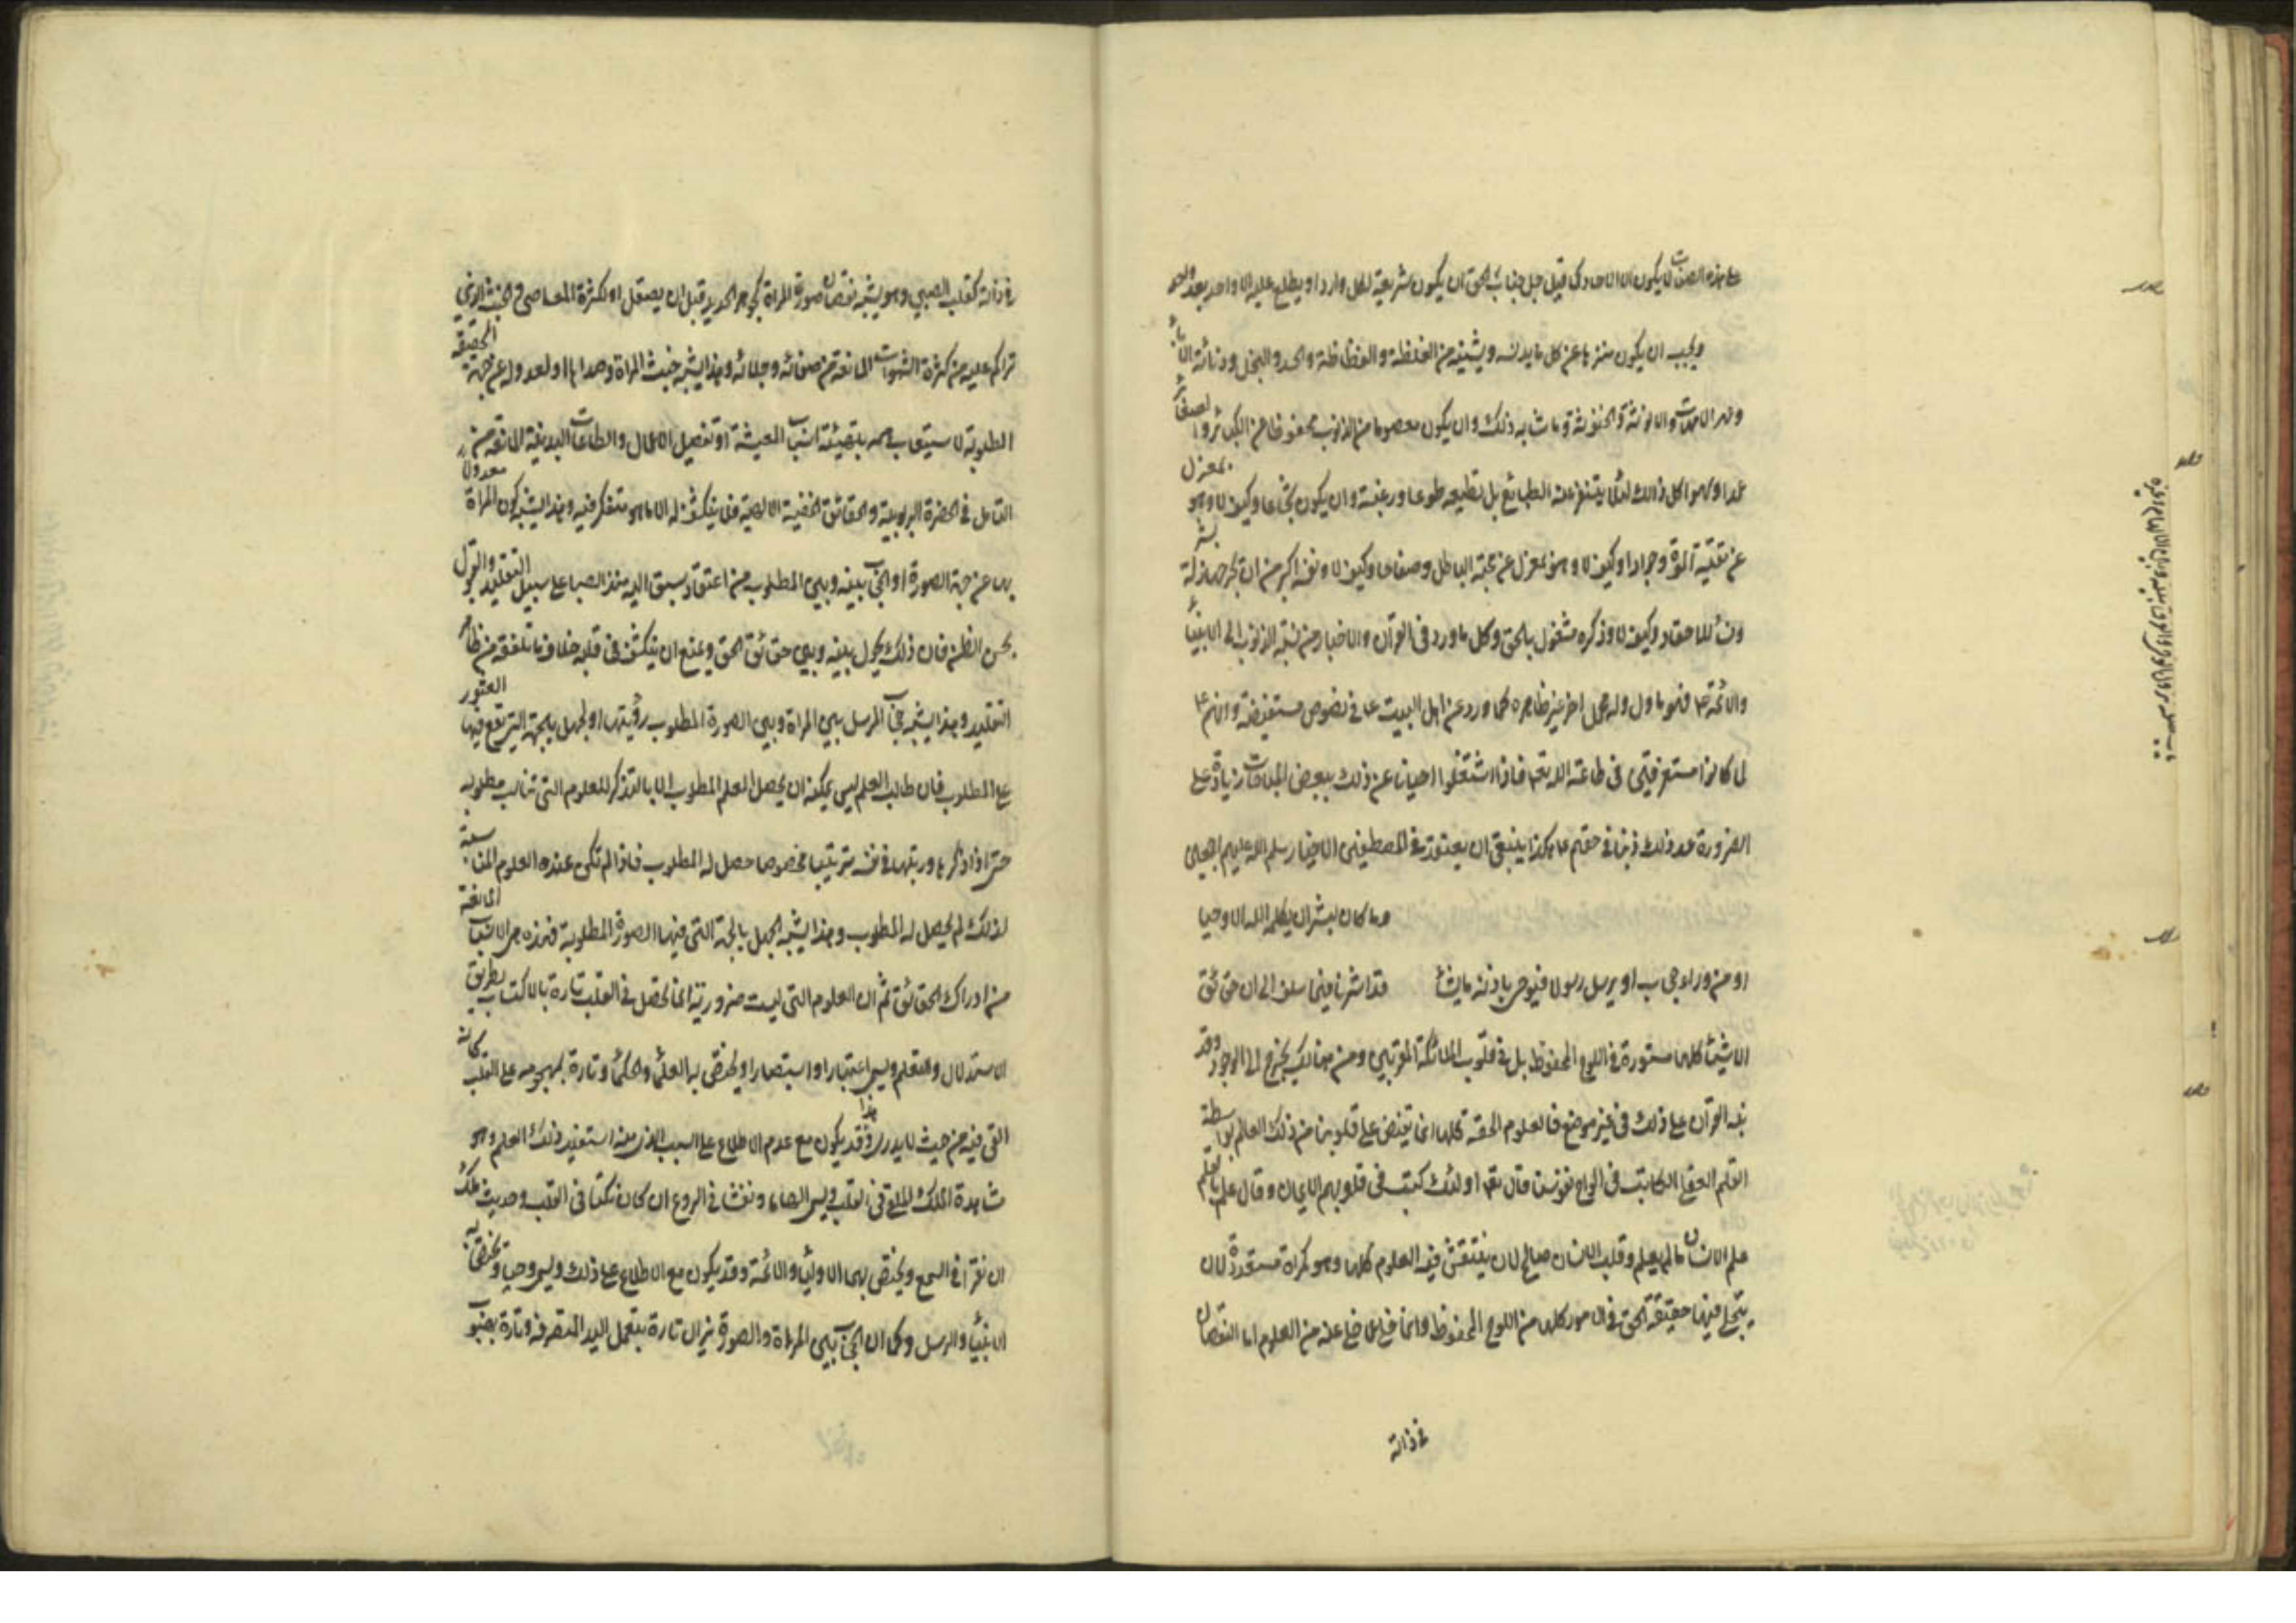 هذه الصفات لا يكون الا الآحاد كما قيل جل جناب الحق ان يكون شريعة لكل وارد او يطلع عليه الا واحد بعد واحد
ويجب ان يكون منزها عن كل ما يدنسه ويشينه من الغلظة والفظاظة والحسد والبخل ودنائة الآباء
وعهر الامهات والانوثة والخنوثة وما شابه ذلك وان يكون معصوما من الذنوب محفوظا من الكبائر والصغائر
عمدا وسهوا كل ذلك لئلا يتنفر عنه الطبائع بل تطيعه طوعا ورغبة وان يكون شجاعا وكيف لا وهو بمعزل
عن تقية الموت وجوادا وكيف لا وهو بمعزل عن محبة الباطل وصفاحا وكيف لا ونفسه اكبر من ان تجرحها زلة بشر
ونساء للاحقاد وكيف لا وذكره مشغول بالحق وكل ما ورد في القرآن والاخبار من نسبة الذنوب الى الانبياء
والائمة ع فهو ماول وله محمل اخر غير ظاهره كما ورد عن اهل البيت ع في نصوص مستفيضة وانهم ع
لما كانوا مستغرقين في طاعة الله تعالى فاذا اشتغلوا احيانا عن ذلك ببعض المباحات زيادة على
الضرورة عد ذلك ذنبا في حقهم ع هكذا ينبغي ان يعتقد في المصطفين الاخيار سلم الله عليهم اجمعين
وما كان لبشر ان يكلمه الله الا وحيا
او من وراء حجاب او يرسل رسولا فيوحى باذنه ما يشاء قد اشرنا فيما سلف الى ان حقائق
الاشياء كلها مستورة في اللوح المحفوظ بل في قلوب الملائكة المقربين ومن هنالك يخرج الى الوجود وقد
نبه القرآن على ذلك في غير موضع فالعلوم الحقة كلها انما تفيض على قلوبنا من ذلك العالم بواسطة
القلم العقلي الكاتب في الواح نفوسنا قال تعالى اولئك كتب في قلوبهم الايمان وقال علم بالقلم
علم الانسان ما لم يعلم وقلب الانسان صالح لان ينتقش فيه العلوم كلها وهو كمرآة مستعدة لان
يتجلى فيها حقيقة الحق في الامور كلها من اللوح المحفوظ وانما خلي عما خلي عنه من العلوم اما لنقصان
في ذاته
في ذاته كقلب الصبي وهو يشبه نقصان صورة المرآة كجوهر الحديد قبل ان يصقل او لكثرة المعاصي والخبث الذي
تراكم عليه من كثرة الشهوات المانعة من صفائه وجلائه وهذا يشبه خبث المرآة وصداها او لعدوله عن جهة الحقيقة
المطلوبة لاستيعاب همه بتهيئة اسباب المعيشة او تفصيل الاعمال والطاعات البدنية المانعة من
التامل في الحضرة الربوبية والحقائق الخفية الالهية فلا ينكشف له الا ما هو متفكر فيه وهذا يشبه كون المرآة معدولا
بها عن جهة الصورة او لحجاب بينه وبين المطلوب من اعتقاد سبق اليه منذ الصبا على سبيل التقليد والقبول
بحسن الظن فان ذلك يحول بينه وبين حقائق الحق ويمنع ان ينكشف في قلبه خلاف ما تلقفه من ظاهر
التقليد وهذا يشبه حجاب المرسل بين المرآة وبين الصورة المطلوب رؤيتها او لجهل بالجهة التي تقع فيها العثور
على المطلوب فان طالب العلم ليس يمكنه ان يحصل العلم المطلوب الا بالتذكر للعلوم التي تناسب مطلوبه
حتى اذا تذكرها ورتبها في نفسه ترتيبا مخصوصا حصل له المطلوب فاذا لم تكن عنده العلوم المناسبة
لذلك لم يحصل له المطلوب وهذا يشبه الجهل بالجهة التي فيها الصورة المطلوبة فهذه هي الاسباب المانعة
من ادراك الحقائق ثم ان العلوم التي ليست ضرورية انما تحصل في القلب تارة بالاكتساب بطريق
الاستدلال والتعلم ويسمى اعتبارا واستبصارا ويختص به العلماء والحكماء وتارة بهجومه على القلب كانه
القي فيه من حيث لا يدري وهذا قد يكون مع عدم الاطلاع على السبب الذي منه استفيد ذلك العلم وهو
مشاهدة الملك الملقي في القلب ويسمى الهاما ونفثا في الروع ان كان نكتا في القلب وحديث ملك
ان نقرا في السمع ويختص بهما الاولياء والائمة وقد يكون مع الاطلاع على ذلك ويسمى وحيا ويختص به
الانبياء والرسل وكما ان الحجاب بين المرآة والصورة يزال تارة بتعمل اليد المتصرفة وتارة بهبوب